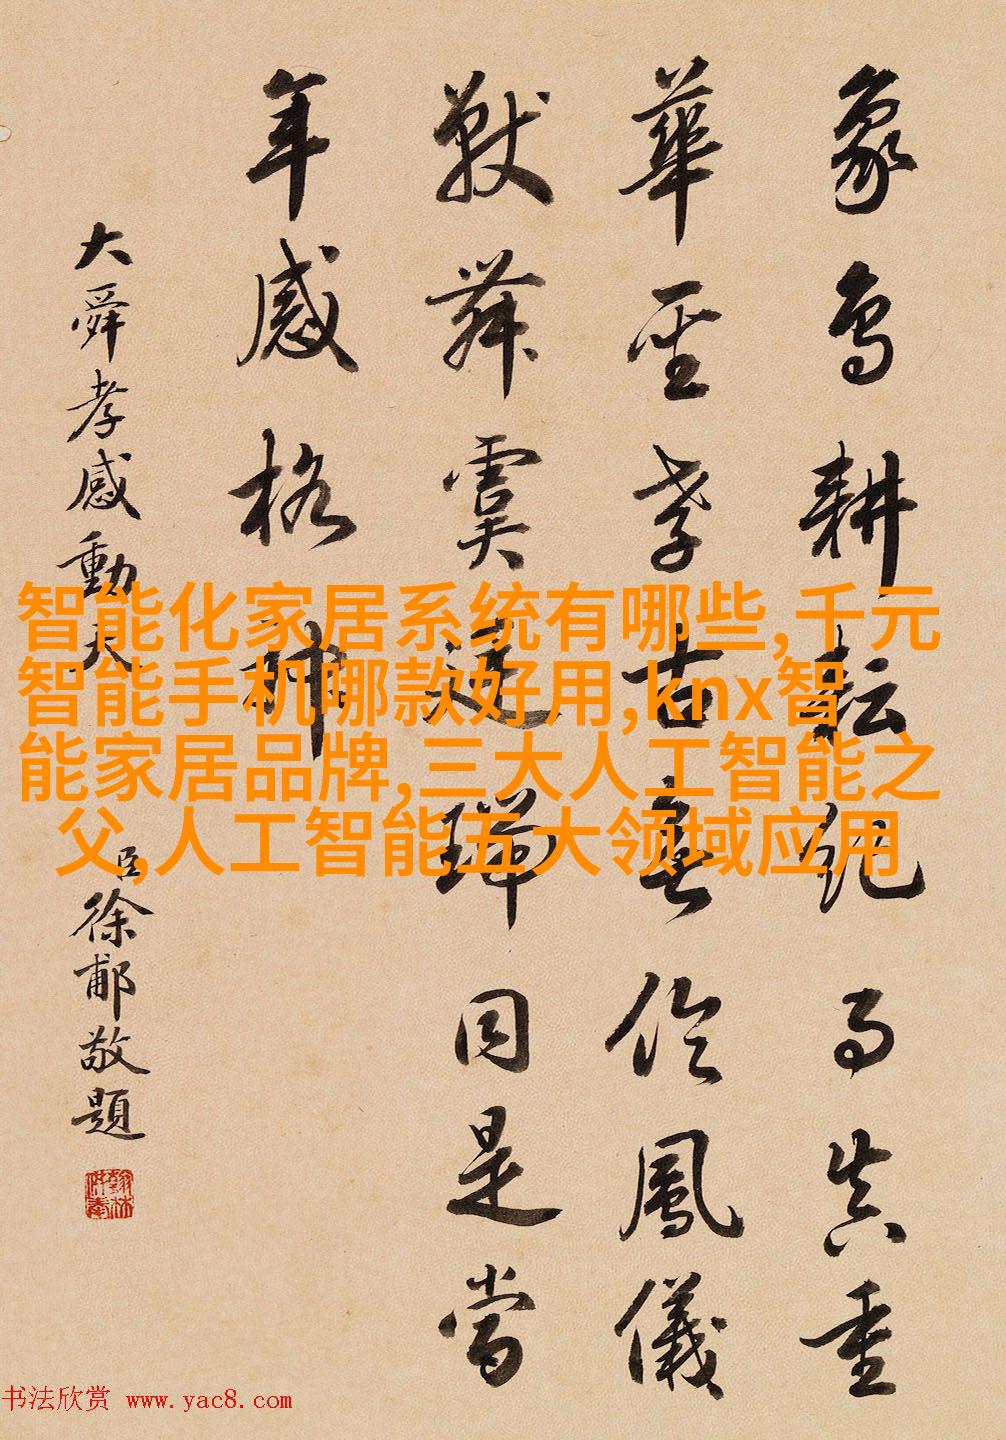 象鳥耕耘紀事真重
華至孝古無倫鳳儀
獸舞虞廷瑞同是當
年感格神
大舜孝感動天
臣徐郙敬題
智能化家居系统有哪些,千元
智能手机哪款好用,knx智
能家居品牌,三大人工智能之
父,人工智能五大领域应用
书法欣赏 www.yac8.com